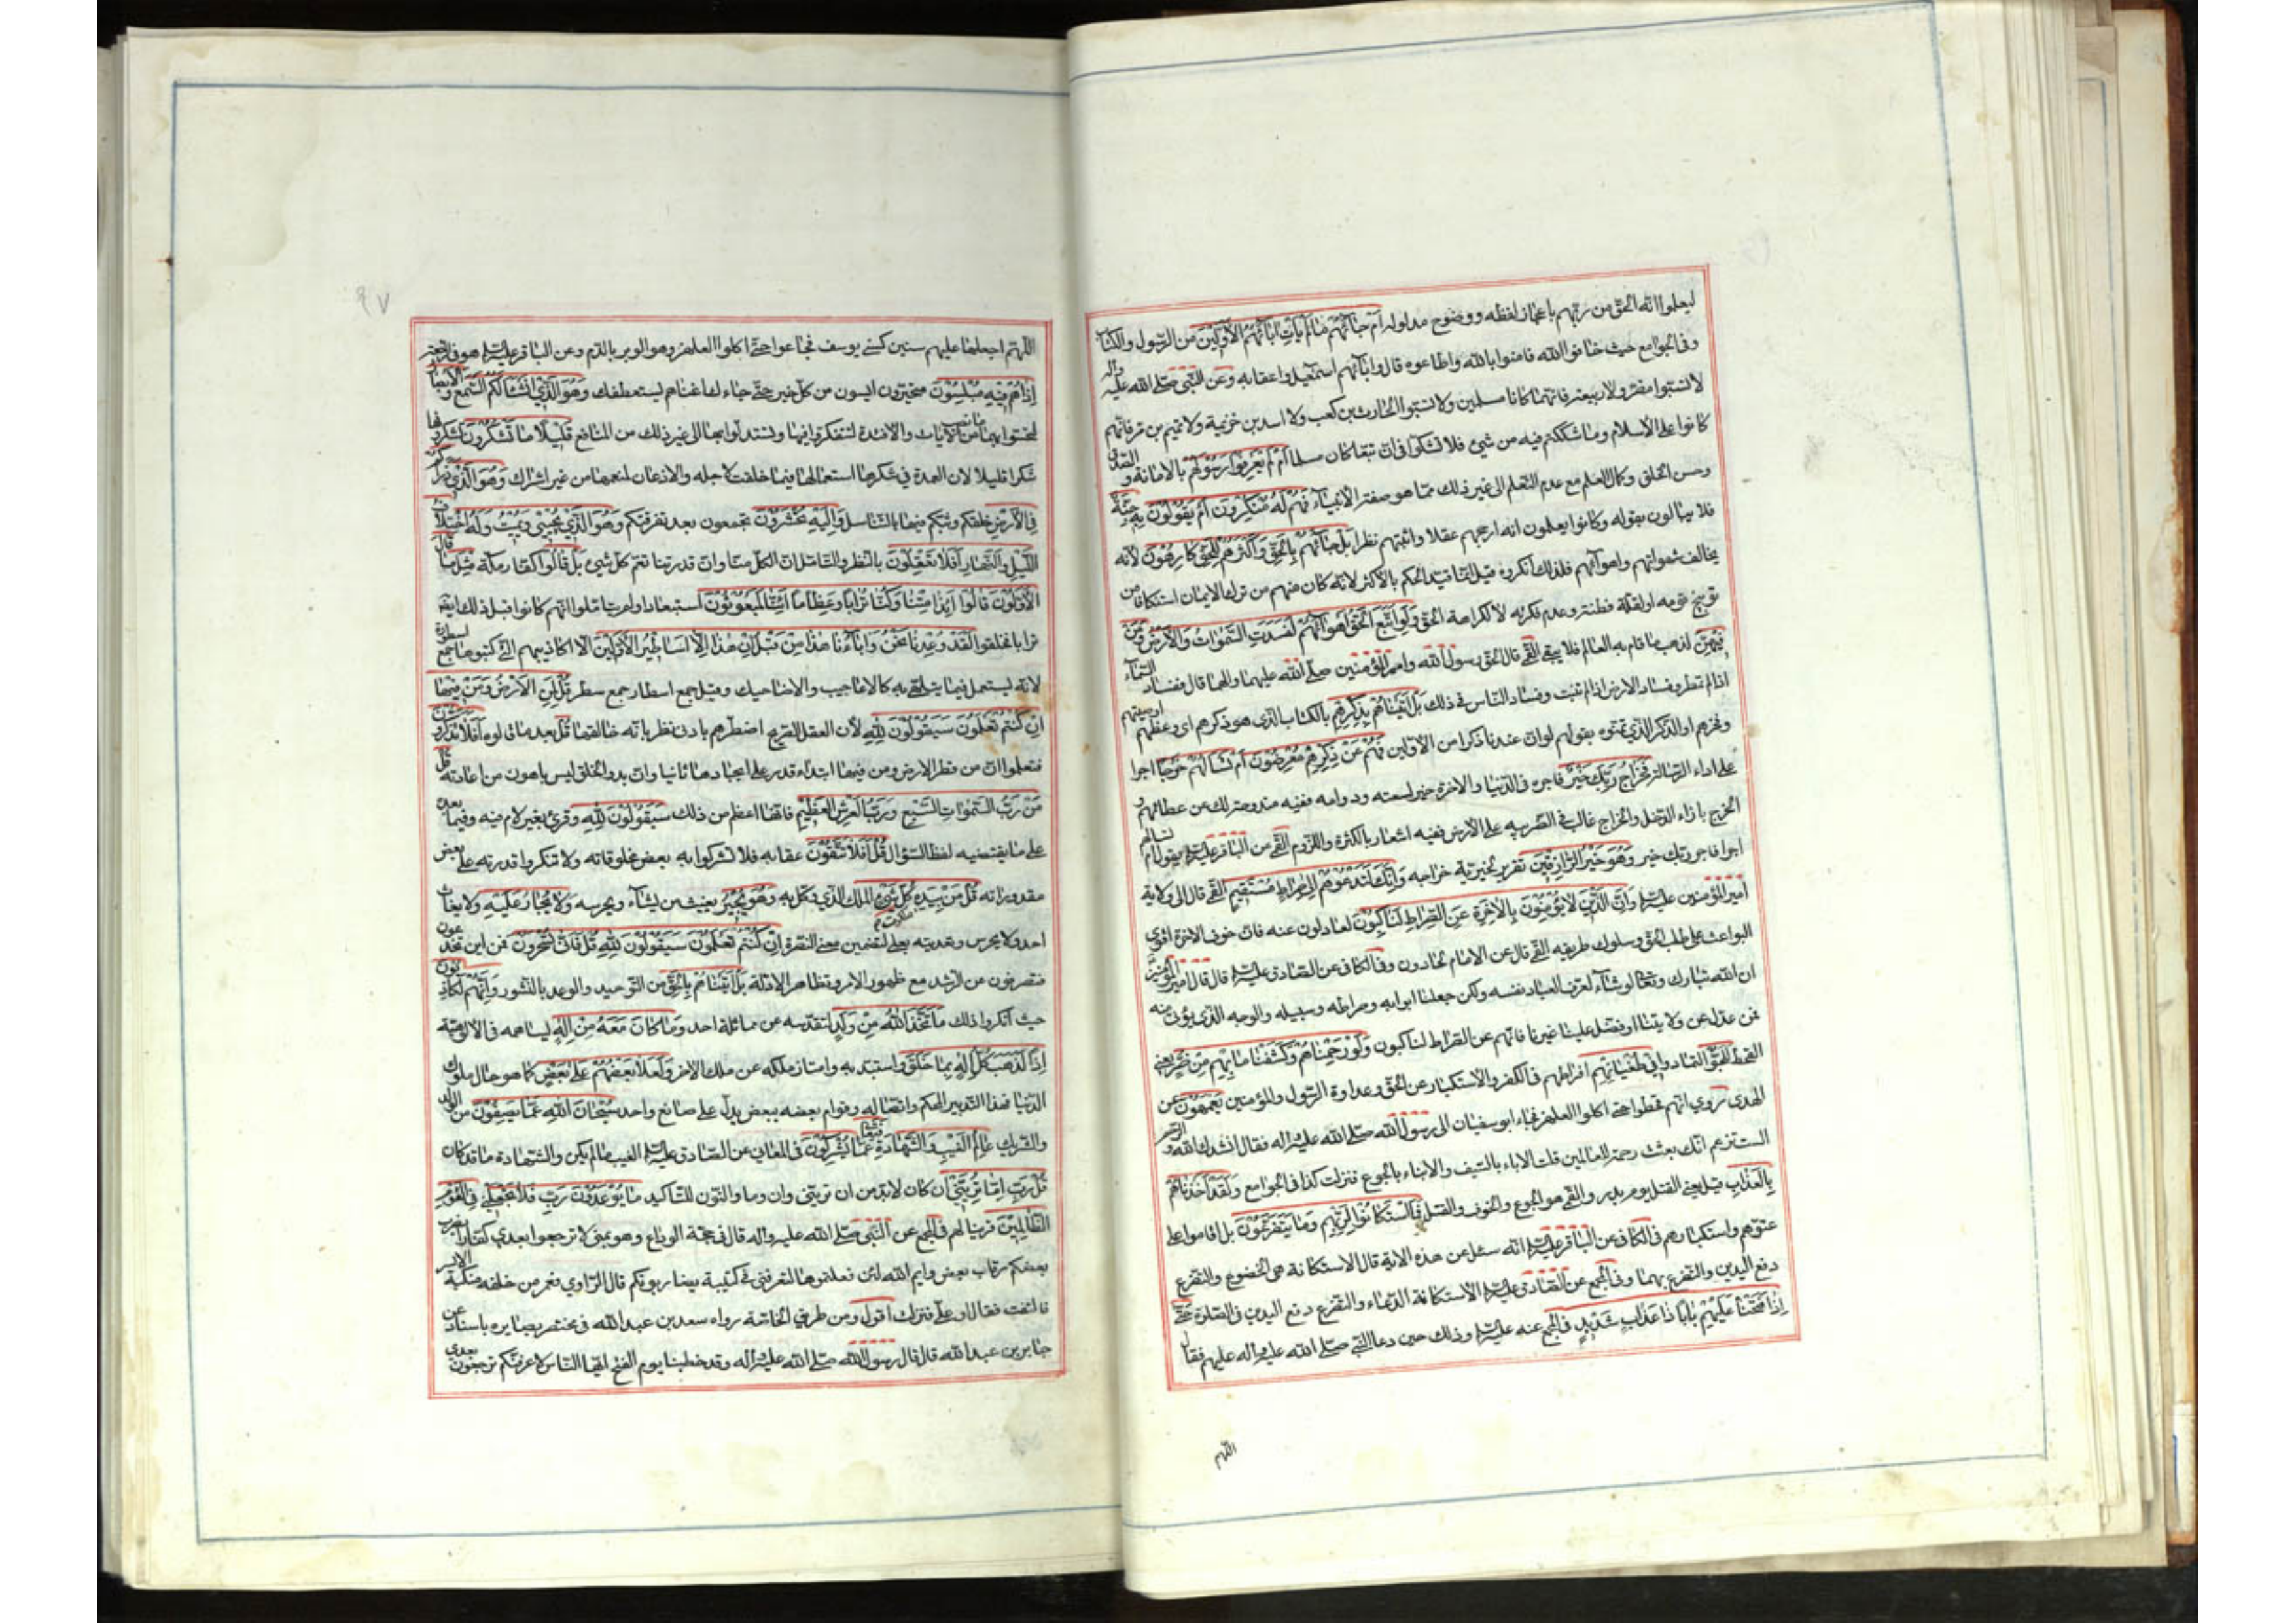 ليعلموا انه الحق من ربهم باعجاز لفظه ووضوح مدلوله ام جائهم ما لم يات ابائهم الاولين من الرسول والكتاب
وفي الجوامع حيث خافوا الله فامنوا بالله واطاعوه قال وابائهم اسمعيل واعقابه وعن النبي صلى الله عليه واله
لا تسبوا مضر ولا ربيعة فانهما كانا مسلمين ولا تسبوا الحارث بن كعب ولا اسد بن خزيمة ولا تميم بن مر فانهم
كانوا على الاسلام وما شككتم فيه من شيء فلا تشكوا في ان تبعا كان مسلما ام لم يعرفوا رسولهم بالامانة والصدق
وحسن الخلق وكمال العلم مع عدم التعلم الى غير ذلك مما هو صفة الانبياء فهم له منكرون ام يقولون به جنة
فلا يبالون بقوله وكانوا يعلمون انه ارجحهم عقلا واثبتهم نظرا بل جائهم بالحق واكثرهم للحق كارهون لانه
يخالف شهواتهم واهوائهم فلذلك انكروه قيل انما قيد الحكم بالاكثر لانه كان منهم من ترك الايمان استنكافا من
توبيخ قومه او لقلة فطنته وعدم فكرته لا لكراهة الحق ولو اتبع الحق اهوائهم لفسدت السموات والارض ومن
فيهن لذهب ما قام به العالم فلا يبقى القمي قال الحق رسول الله وامير المؤمنين صلى الله عليهما والهما قال ففساد السماء
اذا لم تمطر وفساد الارض اذا لم تنبت وفساد الناس في ذلك بل اتيناهم بذكرهم بالكتاب الذي هو ذكرهم اي وعظهم او صيتهم
وفخرهم او الذكر الذي تمنوه بقولهم لو ان عندنا ذكرا من الاولين فهم عن ذكرهم معرضون ام تسالهم خرجا اجرا
على اداء الرسالة فخراج ربك خير فاجره في الدنيا والاخرة خير لسعته ودوامه ففيه مندوحة لك عن عطائهم و
الخرج بازاء الدخل والخراج غالب في الضريبة على الارض ففيه اشعار بالكثرة واللزوم القمي عن الباقر عليه السلم يقول ام تسالهم
اجرا فاجر ربك خير وهو خير الرازقين تقرير لخيرية خراجه وانك لتدعوهم الى صراط مستقيم القمي قال الى ولاية
امير المؤمنين عليه السلم وان الذين لا يؤمنون بالاخرة عن الصراط لناكبون لعادلون عنه فان خوف الاخرة اقوى
البواعث على طلب الحق وسلوك طريقه القمي قال عن الامام لحادون وفي الكافي عن الصادق عليه السلم قال قال امير المؤمنين
ان الله تبارك وتعالى لو شاء لعرف العباد نفسه ولكن جعلنا ابوابه وصراطه وسبيله والوجه الذي يؤتى منه
فمن عدل عن ولايتنا او فضل علينا غيرنا فانهم عن الصراط لناكبون ولو رحمناهم وكشفنا ما بهم من ضر يعني
القحط للجوا لتمادوا في طغيانهم افراطهم في الكفر والاستكبار عن الحق وعداوة الرسول والمؤمنين يعمهون عن
الهدى روي انهم قحطوا حتى اكلوا العلهز فجاء ابو سفيان الى رسول الله صلى الله عليه واله فقال انشدك الله والرحم
الست تزعم انك بعثت رحمة للعالمين قتلت الاباء بالسيف والابناء بالجوع فنزلت كذا في الجوامع ولقد اخذناهم
بالعذاب قيل يعني القتل يوم بدر والقمي هو الجوع والخوف والقتل فما استكانوا لربهم وما يتضرعون بل اقاموا على
عتوهم واستكبارهم في الكافي عن الباقر عليه السلم انه سئل عن هذه الاية قال الاستكانة هي الخضوع والتضرع
رفع اليدين والتضرع بهما وفي المجمع عن الصادق عليه السلم الاستكانة الدعاء والتضرع رفع اليدين في الصلوة حتى
اذا فتحنا عليهم بابا ذا عذاب شديد في المجمع عنه عليه السلم وذلك حين دعا النبي صلى الله عليه واله عليهم فقال
اللهم
٩٧
اللهم اجعلها عليهم سنين كسني يوسف فجاعوا حتى اكلوا العلهز وهو الوبر بالدم وعن الباقر عليه السلم هو في الرجعة
اذا هم فيه مبلسون متحيرون ايسون من كل خير حتى جاء لعاغناهم ليستعطفك وهو الذي انشا لكم السمع والابصار
لتحسوا بها ما نصب من الايات والافئدة لتتفكروا فيها وتستدلوا بها الى غير ذلك من المنافع قليلا ما تشكرون تشكرونها
شكرا قليلا لان العمدة في شكرها استعمالها فيما خلقت لاجله والاذعان لمنعمها من غير اشراك وهو الذي ذراكم
في الارض خلقكم وبثكم فيها بالتناسل واليه تحشرون تجمعون بعد تفرقكم وهو الذي يحيي ويميت وله اختلاف
الليل والنهار افلا تعقلون بالنظر والتامل ان الكل منا وان قدرتنا تعم كل شيء بل قالوا كفار مكة مثل ما قال
الاولون قالوا ائذا متنا وكنا ترابا وعظاما ائنا لمبعوثون استبعادا ولم يتاملوا انهم كانوا قبل ذلك ايضا
ترابا فخلقوا لقد وعدنا نحن واباءنا هذا من قبل ان هذا الا اساطير الاولين الا اكاذيبهم التي كتبوها جمع اسطورة
لانه يستعمل فيما يتلهى به كالاعاجيب والاضاحيك وقيل جمع اسطار جمع سطر قل لمن الارض ومن فيها
ان كنتم تعلمون سيقولون لله لان العقل الصريح اضطرهم بادنى نظر بانه خالقها قل بعد ما قالوه افلا تذكرون
فتعلموا ان من فطر الارض ومن فيها ابتداء قدر على ايجادها ثانيا وان بدو الخلق ليس باهون من اعادته قل
من رب السموات السبع ورب العرش العظيم فانها اعظم من ذلك سيقولون لله وقرئ بغير لام فيه وفيما بعده
على ما يقتضيه لفظ السؤال قل افلا تتقون عقابه فلا تشركوا به بعض مخلوقاته ولا تنكروا قدرته على بعض
مقدوراته قل من بيده ملكوت كل شيء الملك الذي وكل به وهو يجير يغيث من يشاء ويحرسه ولا يجار عليه ولا يغاث
احد ولا يحرس وتعديته بعلى لتضمين معنى النصرة ان كنتم تعلمون سيقولون لله قل فانى تسحرون فمن اين تخدعون
فتصرفون عن الرشد مع ظهور الامر وتظاهر الادلة بل اتيناهم بالحق من التوحيد والوعد بالنشور وانهم لكاذبون
حيث انكروا ذلك ما اتخذ الله من ولد لتقدسه عن مماثلة احد وما كان معه من اله يساهمه في الالوهية
اذا لذهب كل اله بما خلق واستبد به وامتاز ملكه عن ملك الاخر ولعلا بعضهم على بعض كما هو حال ملوك
الدنيا فهذا التدبير المحكم واتصاله وقوام بعضه ببعض يدل على صانع واحد سبحان الله عما يصفون من الولد
والشريك عالم الغيب والشهادة فتعالى عما يشركون في المعاني عن الصادق عليه السلم الغيب ما لم يكن والشهادة ما قد كان
قل رب اما تريني ان كان لا بد من ان تريني وان وما والنون للتاكيد ما يوعدون رب فلا تجعلني في القوم
الظالمين قرينا لهم في المجمع عن النبي صلى الله عليه واله قال في حجة الوداع وهو بمنى لا ترجعوا بعدي كفارا يضرب
بعضكم رقاب بعض وايم الله لئن فعلتموها لتعرفني في كتيبة يضاربونكم قال الراوي فغمز من خلفه منكبه الايسر
فالتفت فقال او علي فنزلت اقول ومن طريق الخاصة رواه سعد بن عبد الله في مختصر بصايره باسناده عن
جابر بن عبد الله قال قال رسول الله صلى الله عليه واله وقد خطبنا يوم الفتح ايها الناس لا عرفنكم ترجعون بعدي